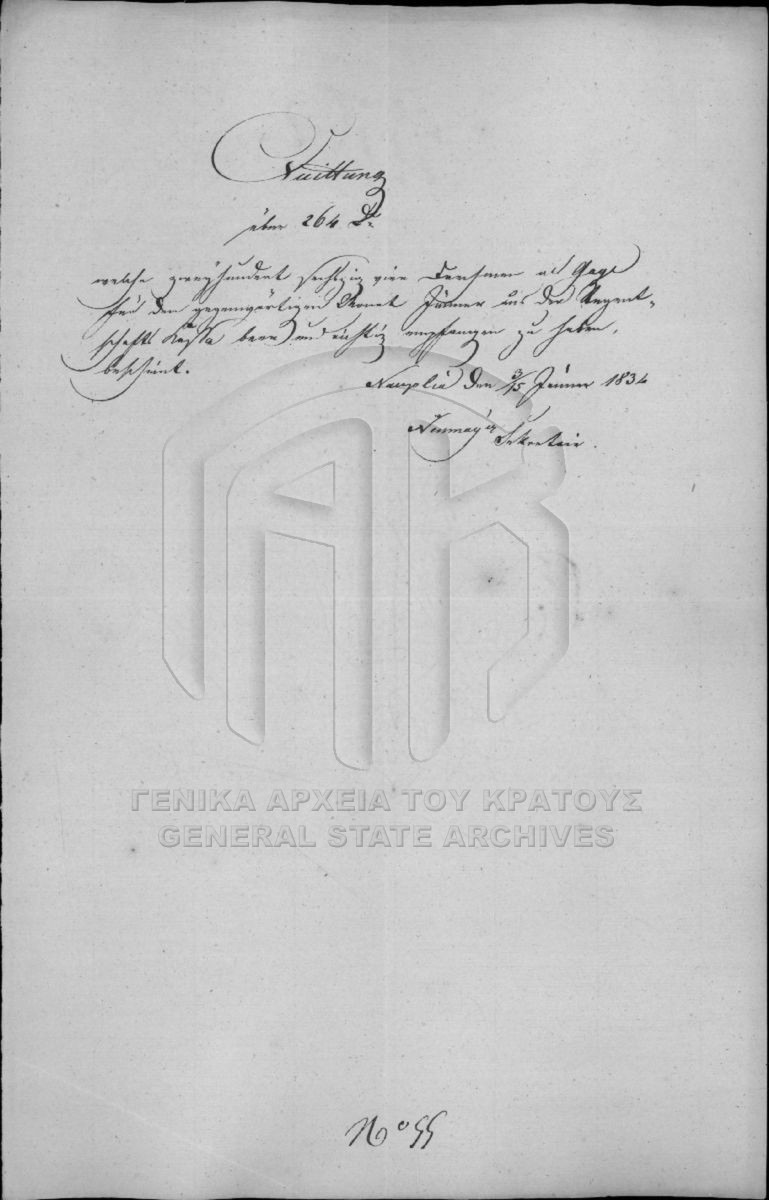 Quittung
über 264 Dr.
welche zweyhundert sechszig vier Drachmen als Gage
für den gegenwärtigen Monat Jänner aus der Regent-
schafts Kassa baar und richtig empfangen zu haben,
bescheint.
Nauplia den 3/15 Jänner 1834
Neumayer
Sekretair.
ΓΕΝΙΚΑ ΑΡΧΕΙΑ ΤΟΥ ΚΡΑΤΟΥΣ
GENERAL STATE ARCHIVES
No 55